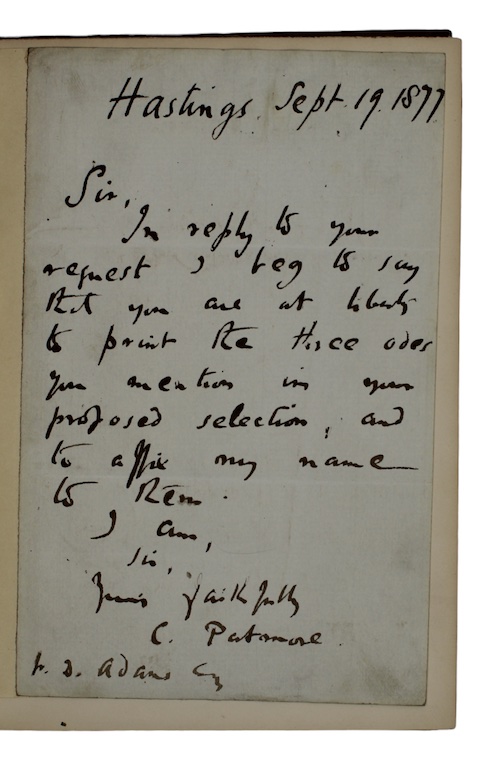 Hastings. Sept. 19. 1877
Sir,
In reply to your
request I beg to say
that you are at liberty
to print the three odes
you mention in your
proposed selection, and
to affix my name
to them.
I am,
Sir,
Yours faithfully
C. Patmore.
D. Adams Esq